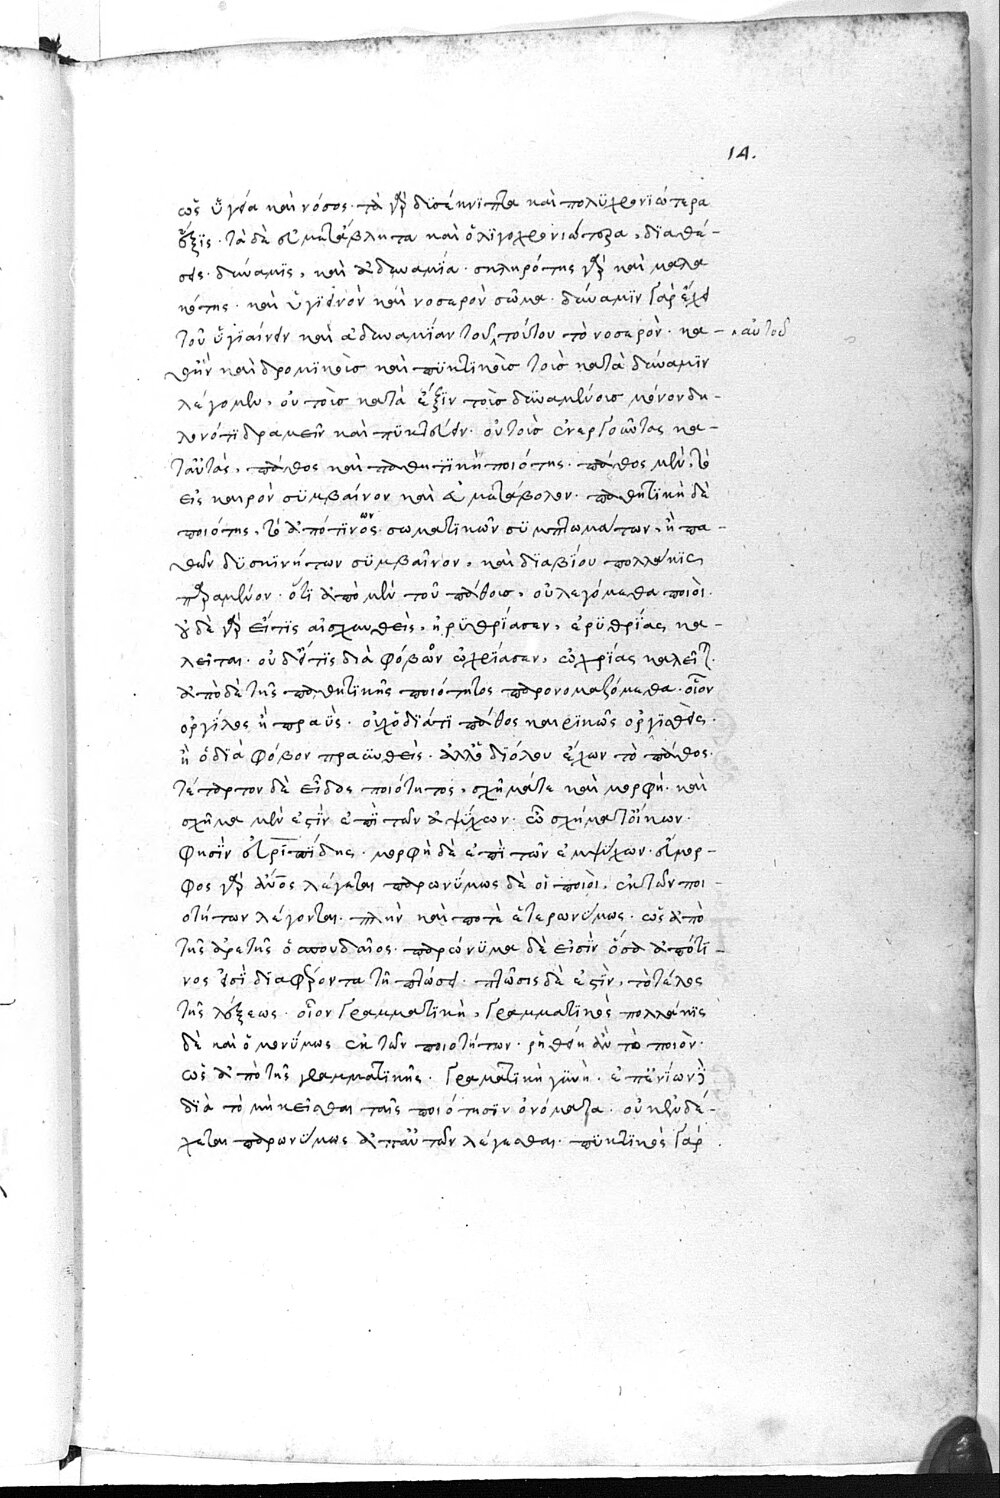 14.
ὡς ὑγεία καὶ νόσος· τὰ γὰρ δυσκίνητα καὶ πολυχρονιώτερα
ἕξις· τὰ δὲ εὐμετάβλητα καὶ ὀλιγοχρονιώτερα, διαθέ-
σεις· δύναμις, καὶ ἀδυναμία· σκληρότης γὰρ καὶ μαλα
κότης· καὶ ὑγιεινὸν καὶ νοσερὸν σῶμα· δύναμιν γὰρ ἔχει
τοῦ ὑγιαίνειν καὶ ἀδυναμίαν τοῦ τούτου τὸ νοσερὸν· κα-
αὐτοῦ
θὴν καὶ δρομικοὶς καὶ πυκτικοὶς τοὶς κατὰ δύναμιν
λέγομεν, οὐ τοὶς κατὰ ἕξιν τοὶς δυναμένοις μόνον δη-
λονότι δραμεῖν καὶ πυκτεύειν· οὐ τοὶς ἐνεργοῦντας κα-
ταῦτας, πάθος καὶ παθητικὴ ποιότης· πάθος μὲν, τὸ
εἰς καιρὸν συμβαίνον καὶ εὐμετάβολον· παθητικὴ δὲ
ποιότης, τὸ ἀπό τινος σωματικῶν συμπτωμάτων, ἢ πα-
θῶν δυσκινήτων συμβαῖνον, καὶ διαβίου πολλάκις
παραμένον· ὅτι ἀπὸ μὲν τοῦ πάθοις, οὐ λεγόμεθα ποιοὶ·
οὐδὲ γὰρ εἴτις αἰσχυνθεὶς, ἠρυθρίασεν, ἐρυθρίας κα-
λεῖται· οὐδ' εἴτις διὰ φόβων ὠχρίασεν, ὠχρίας καλεῖται·
ἀπὸ δὲ τῆς παθητικῆς ποιότητος παρονομαζόμεθα· οἷον
ὀργίλος ἢ πραῢς· οὐχ ὁ διάτι πάθος καιρικῶς ὀργισθεὶς·
ἢ ὁ διὰ φόβον πραυνθεὶς· ἀλλ' ὁ διόλου ἔχων τὸ πάθος·
τέταρτον δὲ εἶδος ποιότητος, σχῆμάτε καὶ μορφή· καὶ
σχῆμα μὲν ἐστὶν ἐπὶ τῶν ἀψύχων· ὦ σχήματ' οἴκων·
φησὶν εὐριπίδης· μορφὴ δὲ ἐπὶ τῶν ἐμψύχων· εὔμορ-
φος γὰρ ἄνος λέγεται παρωνύμως δὲ οἱ ποιοὶ, ἐκ τῶν ποι-
οτήτων λέγονται· πλὴν καὶ ποτὲ ἑτερωνύμως· ὡς ἀπὸ
τῆς ἀρετῆς ὁ σπουδαῖος· παρώνυμα δὲ εἰσὶν ὅσα ἀπότι-
νος εἰσὶ διαφέροντα τῇ πτώσει· πτῶσις δὲ ἐστὶν, τὸ τέλος
τῆς λέξεως· οἷον γραμματικὴ, γραμματικὸς πολλάκις
δὲ καὶ ὁμονύμως ἐκ τῶν ποιοτήτων· ῥηθείη ἂν τὸ ποιὸν·
ὡς ἀπὸ τῆς γραμματικῆς· γραματικὴ γυνὴ· ἐπενίων δὲ
διὰ τὸ μὴ κεῖσθαι ταῖς ποιότησιν ὀνόματα· οὐκ ἐνδέ-
χεται παρωνύμως ἀπ' αὐτῶν λέγεσθαι· πυκτικὸς γὰρ